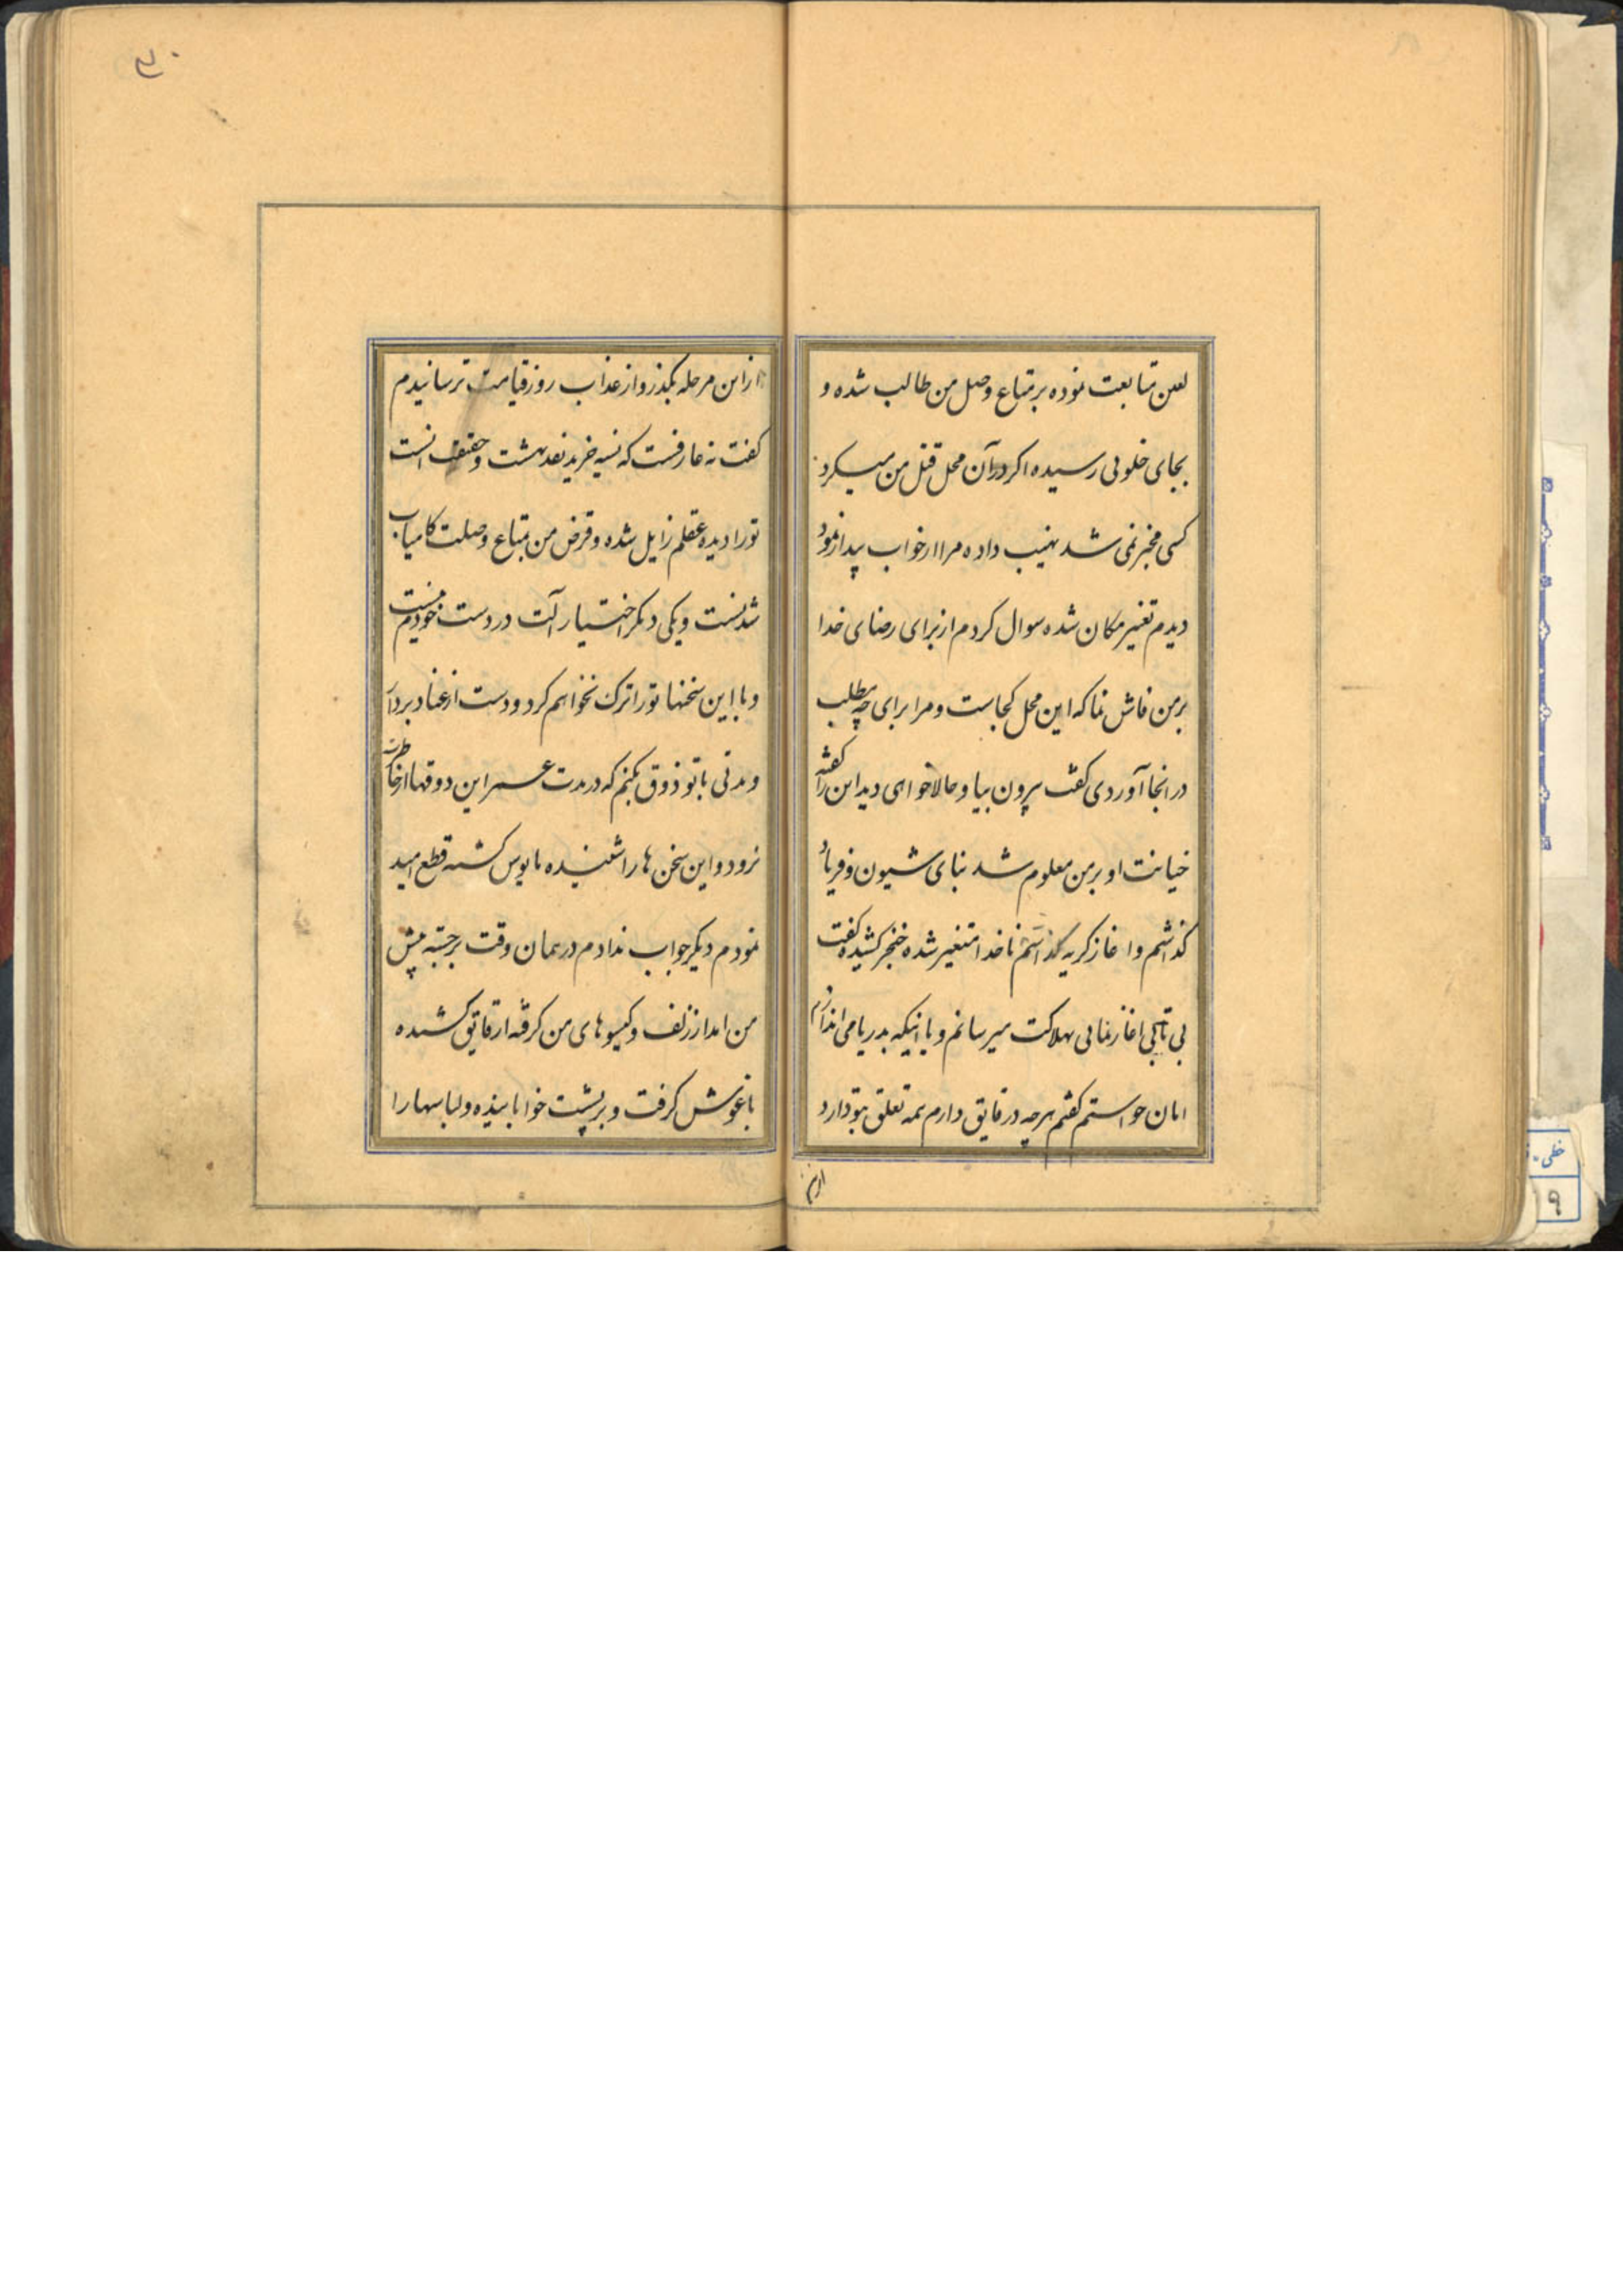 لعین متابعت نموده بر متاع وصل من طالب شده و
بجای خلوتی رسیده اکر در آن محل قتل من میکرد
کسی مخبر نمی شد نهیب داده مرا از خواب بیدار نمود
دیدم تغییر مکان شده سوال کردم از برای رضای خدا
بر من فاش نما که این محل کجاست و مرا برای چه مطلب
در اینجا آوردی کفت بیرون بیا و حالا خواهی دید این را کفته
خیانت او بر من معلوم شد بنای شیون و فریاد
کذاشتم و اغاز کریه کذاشتم ناخدا متغیر شده خنجر کشیده کفت
بی تابی اغاز نمائی بهلاکت میرسانم و یا اینکه بدریا می اندازم
امان خواستم کفتم هرچه در قایق دارم همه تعلق بتو دارد
از این
۳۰
از این مرحله بکذر و از عذاب روز قیامت ترسانیدم
کفت نه عارفست که نسیه خرید نقد بهشت و حقیقت انست
تو را دیده عقلم زایل شده و قرض من بمتاع وصلت کامیاب
شدنست و یکی دیکر اختیار آلت در دست خودم نیست
و با این سخنها تو را ترک نخواهم کرد و دست از عناد بردار
و مدتی با تو ذوق بکنم که در مدت عمر این ذوقها از خاطرت
نرود و این سخن ها را شنیده مایوس کشته قطع امید
نمودم دیکر جواب ندادم در همان وقت برجسته پیش
من امد از زلف و کیسوهای من کرفته از قایق کشیده
باغوش کرفت و بر پشت خوابانیده و لباسها را
خطی
۹